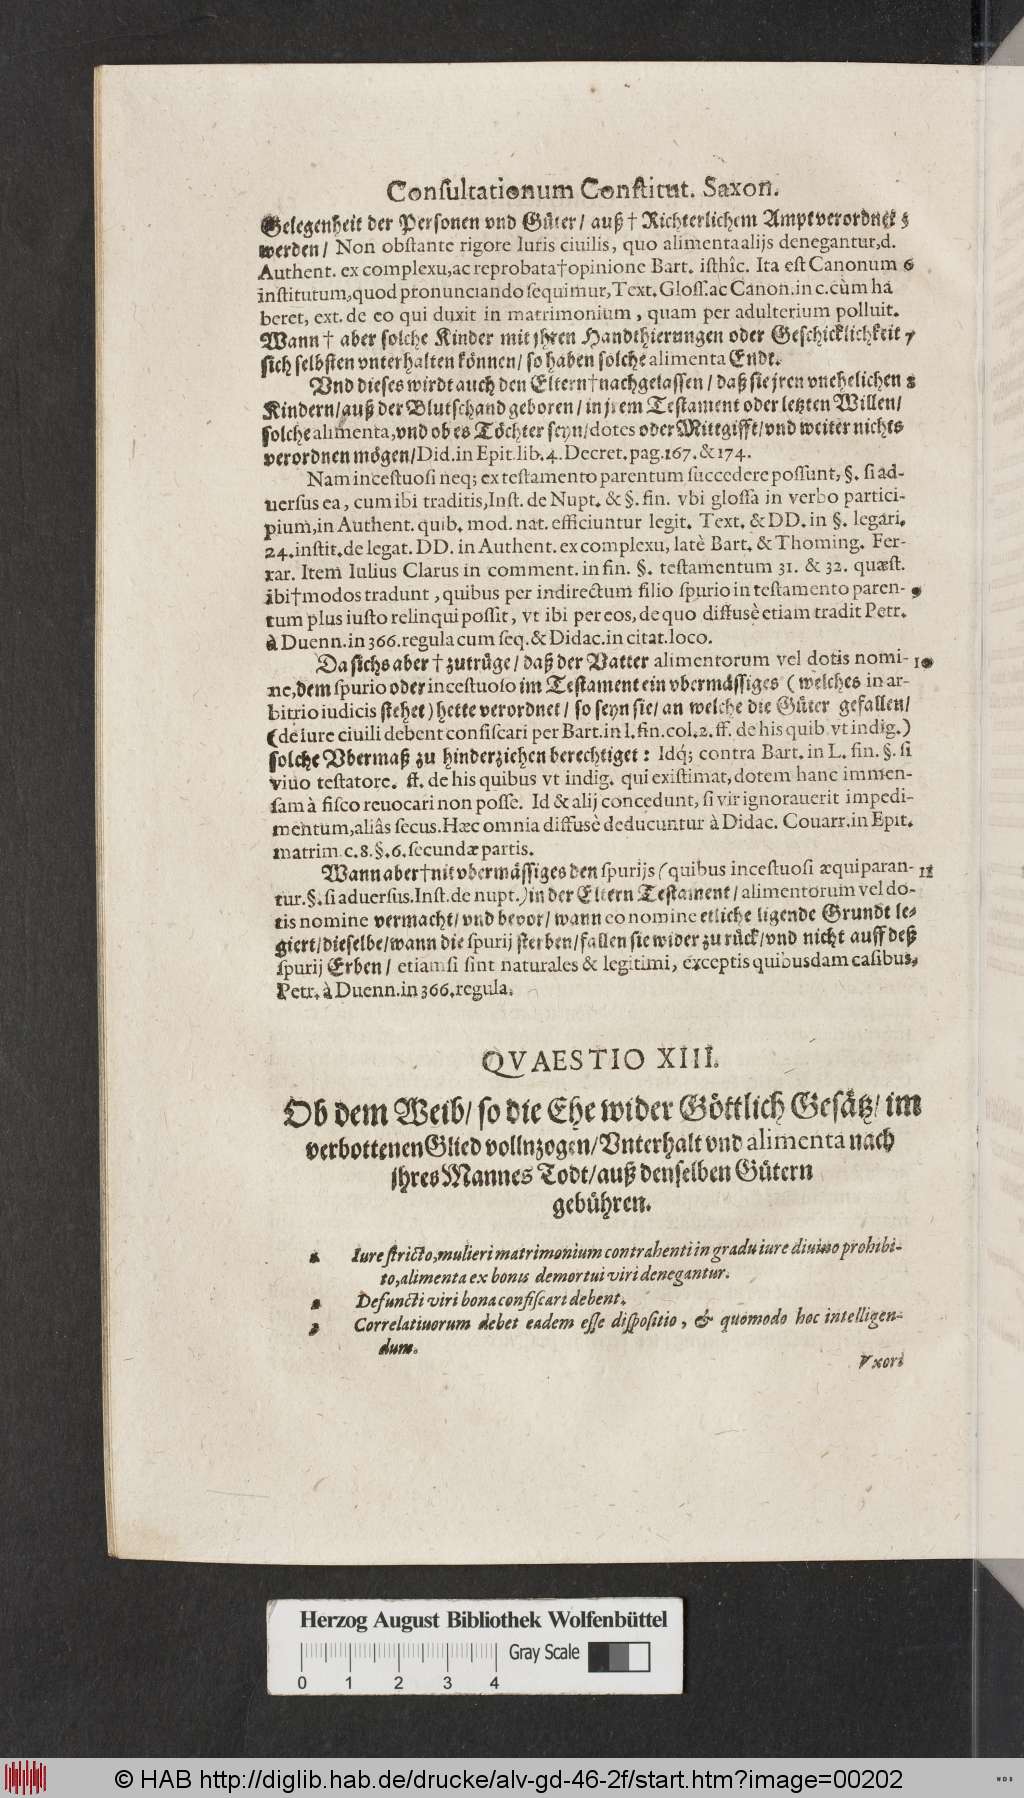 Consultationum Constitut. Saxon.
Gelegenheit der Personen vnd Güter / auß † Richterlichem Ampt verordnet 5
werden / Non obstante rigore Iuris ciuilis, quo alimenta alijs denegantur, d.
Authent. ex complexu, ac reprobata † opinione Bart. isthîc. Ita est Canonum 6
institutum, quod pronunciando sequimur, Text. Gloss. ac Canon. in c. cùm ha
beret, ext. de eo qui duxit in matrimonium, quam per adulterium polluit.
Wann † aber solche Kinder mit jhren Handthierungen oder Geschicklichkeit 7
sich selbsten vnterhalten können / so haben solche alimenta Endt.
Vnd dieses wirdt auch den Eltern † nachgelassen / daß sie jren vnehelichen 8
Kindern / auß der Blutschand geboren / in jrem Testament oder letzten Willen /
solche alimenta, vnd ob es Töchter seyn / dotes oder Mittgifft / vnd weiter nichts
verordnen mögen / Did. in Epit. lib. 4. Decret. pag. 167. & 174.
Nam incestuosi neq; ex testamento parentum succedere possunt, §. si ad-
uersus ea, cum ibi traditis, Inst. de Nupt. & §. fin. vbi glossa in verbo partici-
pium, in Authent. quib. mod. nat. efficiuntur legit. Text. & DD. in §. legari.
24. instit. de legat. DD. in Authent. ex complexu, latè Bart. & Thoming. Fer-
rar. Item Iulius Clarus in comment. in fin. §. testamentum 31. & 32. quæst.
ibi † modos tradunt, quibus per indirectum filio spurio in testamento paren- 9
tum plus iusto relinqui possit, vt ibi per eos, de quo diffusè etiam tradit Petr.
à Duenn. in 366. regula cum seq. & Didac. in citat. loco.
Da sichs aber † zutrüge / daß der Vatter alimentorum vel dotis nomi- 10
ne, dem spurio oder incestuoso im Testament ein vbermässiges ( welches in ar-
bitrio iudicis stehet ) hette verordnet / so seyn sie / an welche die Güter gefallen /
( de iure ciuili debent confiscari per Bart. in l. fin. col. 2. ff. de his quib. vt indig. )
solche Vbermaß zu hinderziehen berechtiget : Idq; contra Bart. in L. fin. §. si
viuo testatore. ff. de his quibus vt indig. qui existimat, dotem hanc immen-
sam à fisco reuocari non posse. Id & alij concedunt, si vir ignorauerit impedi-
mentum, aliâs secus. Hæc omnia diffusè deducuntur à Didac. Couarr. in Epit.
matrim. c. 8. §. 6. secundæ partis.
Wann aber † nit vbermässiges den spurijs ( quibus incestuosi æquiparan- 11
tur. §. si aduersus. Inst. de nupt. ) in der Eltern Testament / alimentorum vel do-
tis nomine vermacht / vnd bevor / wann eo nomine etliche ligende Grundt le-
giert / dieselbe / wann die spurij sterben / fallen sie wider zu rück / vnd nicht auff deß
spurij Erben / etiamsi sint naturales & legitimi, exceptis quibusdam casibus,
Petr. à Duenn. in 366. regula.
QVAESTIO XIII.
Ob dem Weib / so die Ehe wider Göttlich Gesätz / im
verbottenen Glied vollnzogen / Vnterhalt vnd alimenta nach
jhres Mannes Todt / auß denselben Gütern
gebühren.
1 Iure stricto, mulieri matrimonium contrahenti in gradu iure diuino prohibi-
to, alimenta ex bonis demortui viri denegantur.
2 Defuncti viri bona confiscari debent.
3 Correlatiuorum debet eadem esse dispositio, & quomodo hoc intelligen-
dum.
Vxori
Herzog August Bibliothek Wolfenbüttel
Gray Scale
0 1 2 3 4
© HAB http://diglib.hab.de/drucke/alv-gd-46-2f/start.htm?image=00202